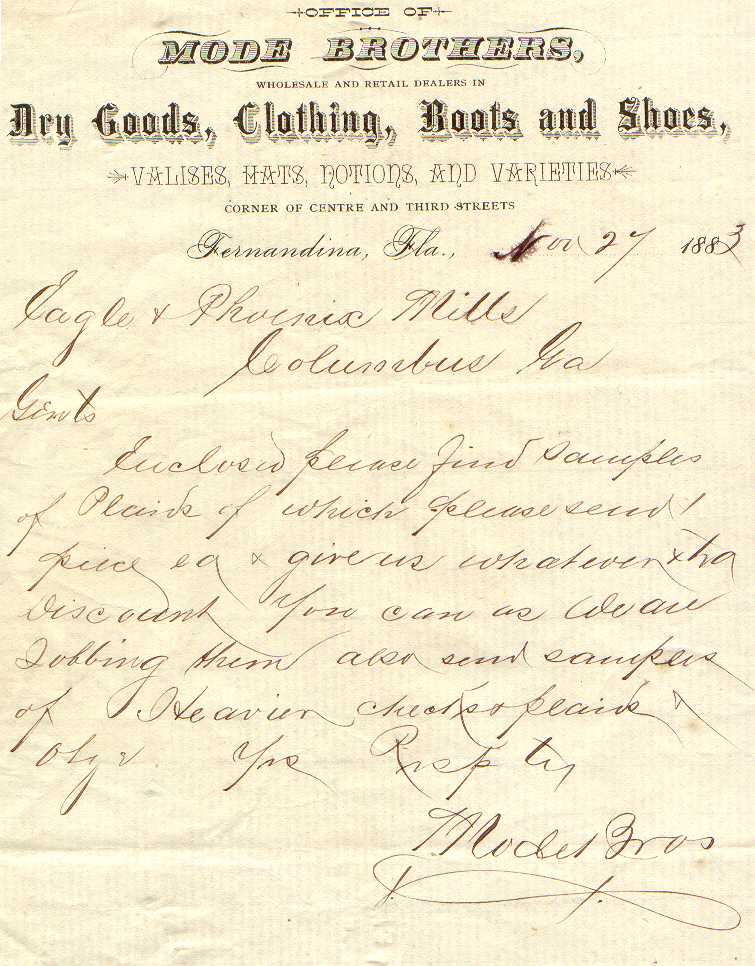 OFFICE OF
MODE BROTHERS,
WHOLESALE AND RETAIL DEALERS IN
Dry Goods, Clothing, Boots and Shoes,
VALISES, HATS, NOTIONS, AND VARIETIES
CORNER OF CENTRE AND THIRD STREETS
Fernandina, Fla., Nov 27 1883
Eagle & Phoenix Mills
Columbus Ga
Gents
Enclosed please find samples
of Plaids of which please send 1
piece ea & give us whatever xtra
Discount You can as We are
Jobbing them also send samples
of Heavier checks & plaids &
Obge Yrs Respty
Mode Bros